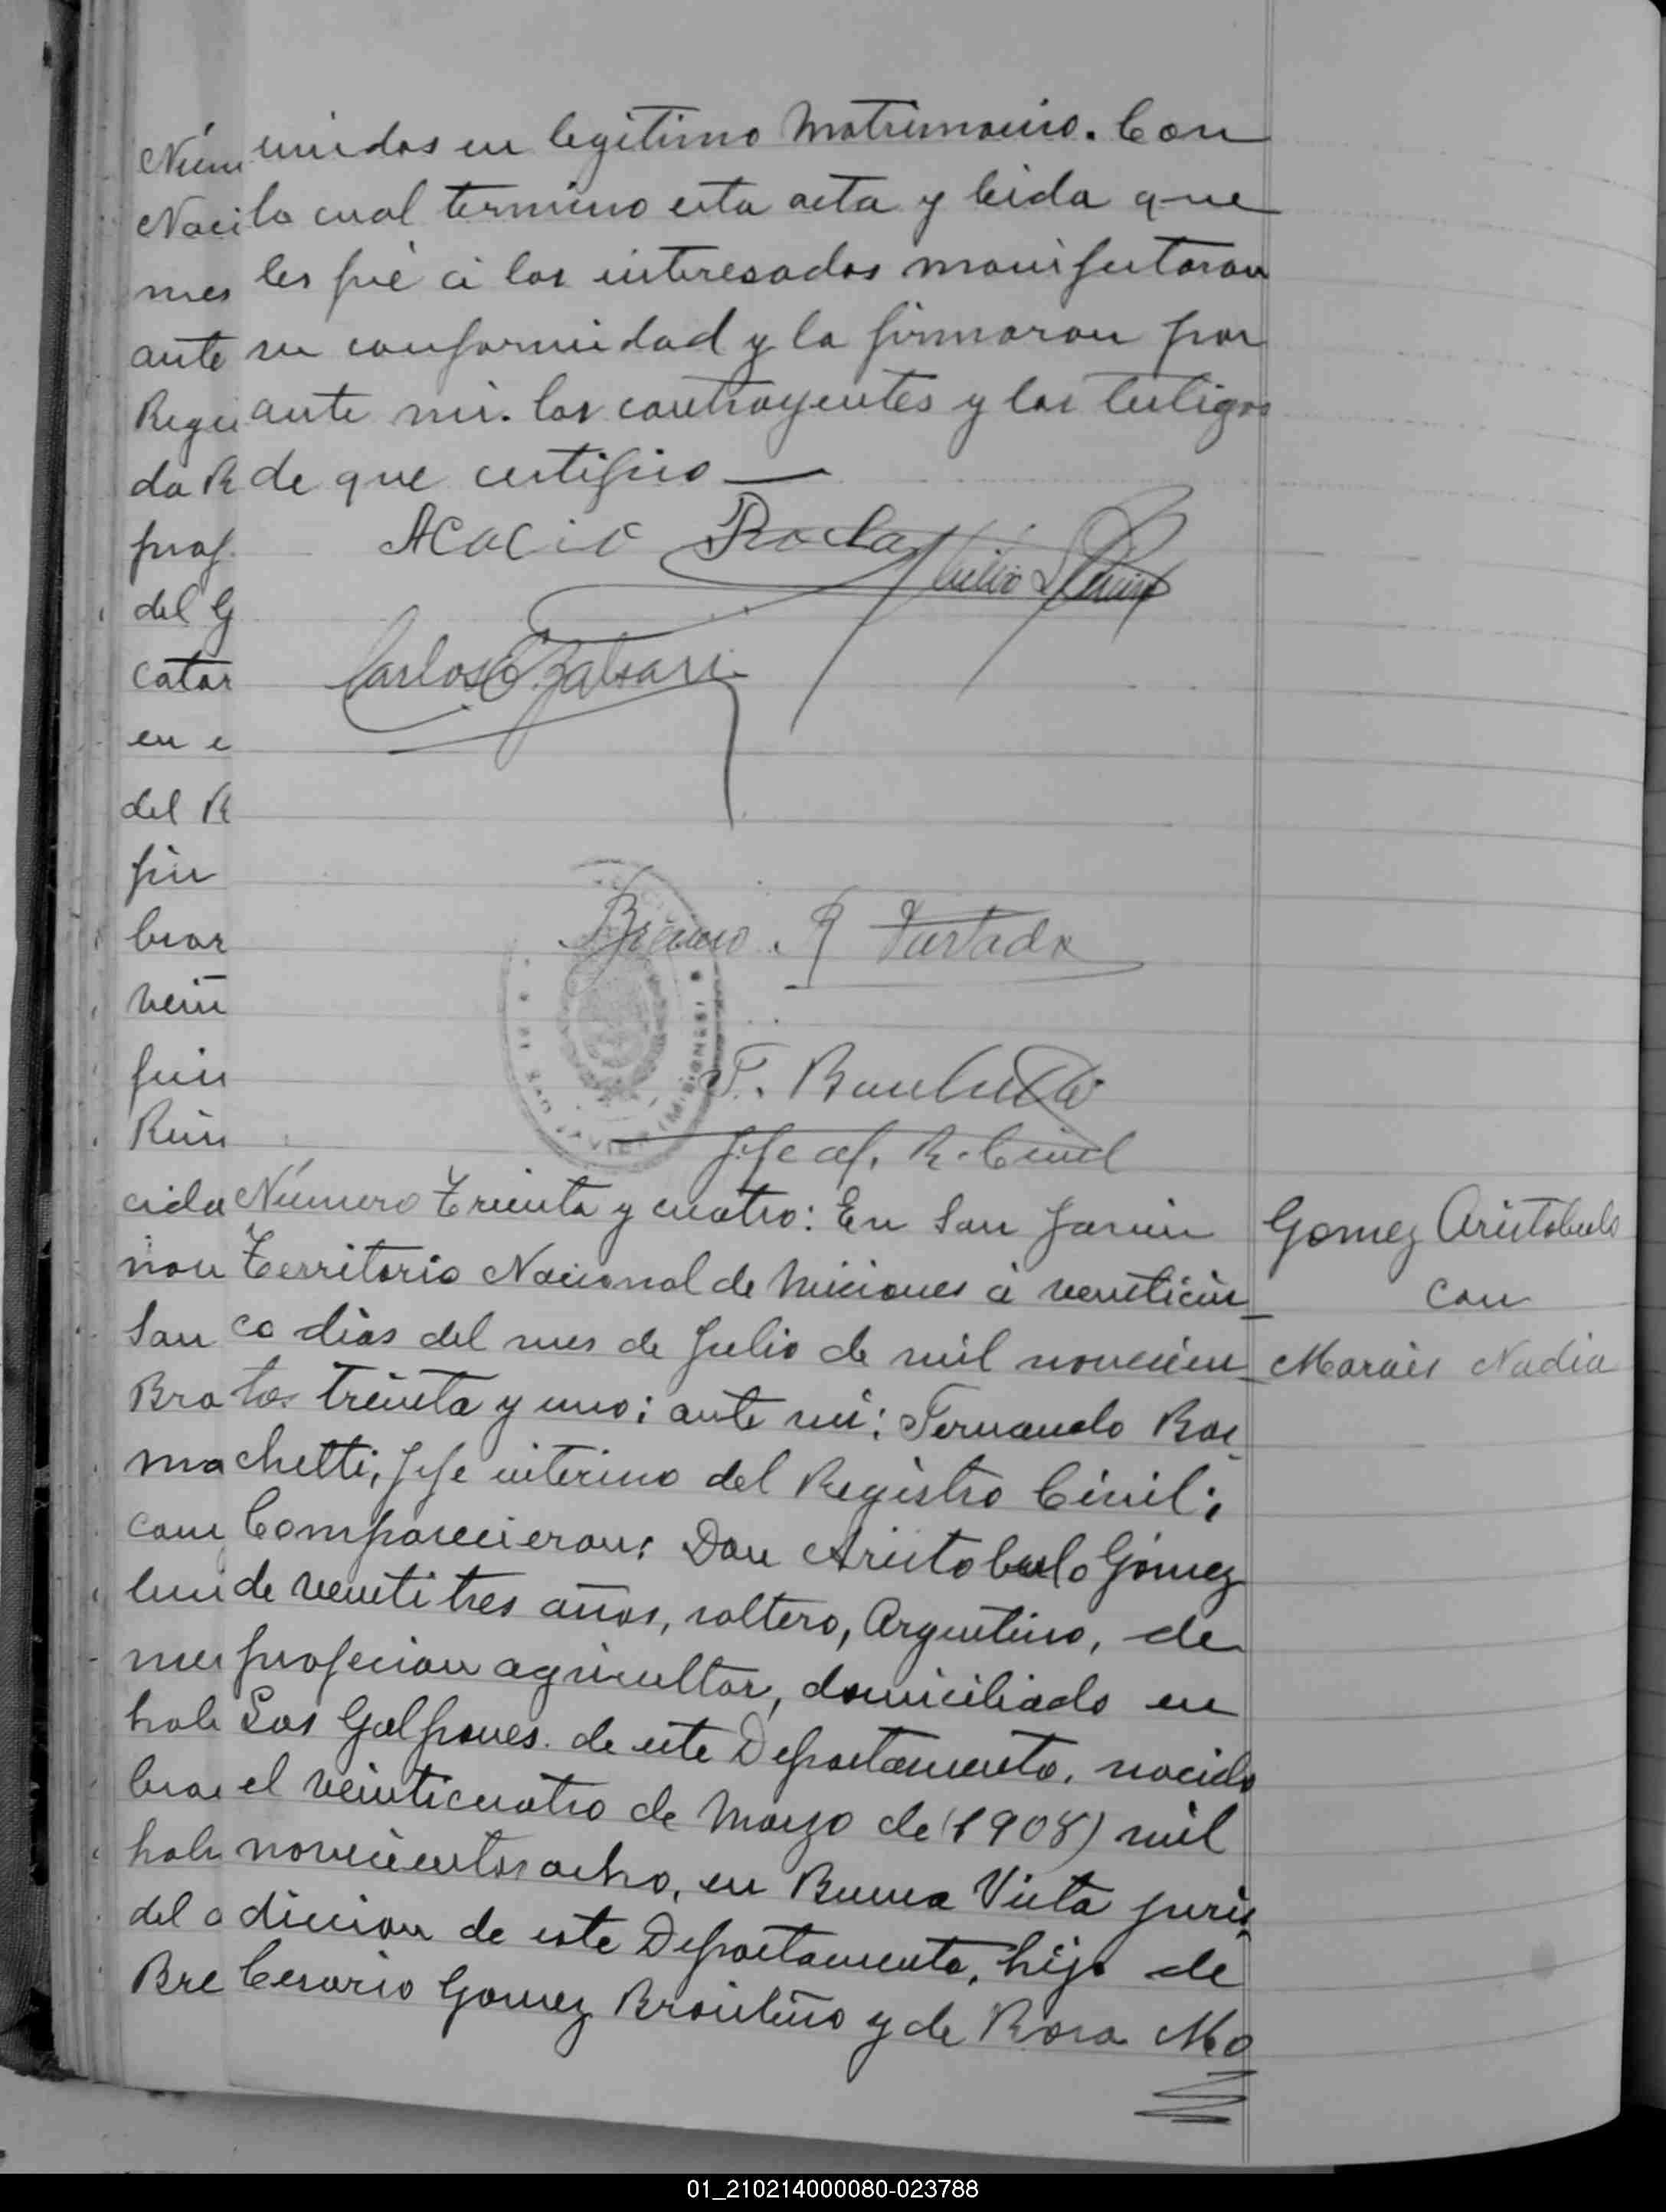 unidos en legitimo Matrimonio. Con
lo cual termino esta acta y leida que
les fué á los interesados manifestaron
su conformidad y la firmaron por
ante mi. los contrayentes y los testigos
de que certifico —
Acacio Rocha
Carlos
Bruno
F.
Jefe af. R. Civil
Número Treinta y cuatro: En San Javier
Territorio Nacional de Misiones á veinticin
co dias del mes de Julio de mil novecien
tos treinta y uno; ante mi: Fernando Bos
chetti, Jefe interino del Registro Civil;
Comparecieron: Don Aristobulo Gómez
de veinti tres años, soltero, Argentino, de
profecion agricultor, domiciliado en
Los Galpones. de este Departamento, nacido
el veinticuatro de Marzo de (1908) mil
novecientos ocho, en Buena Vista juris
diccion de este Departamento, hijo de
Cesario Gomez Brasilero y de Rosa Mo
Gomez Aristobulo
con
Morais Nadia
Núm
Naci
mes
ante
Regis
da R
prof.
del G
Catar
en e
del R
fin
bior
vein
fin
Rein
cida
non
San
Bra
ma
com
del a
Bre
MISIONES
01_210214000080-023788